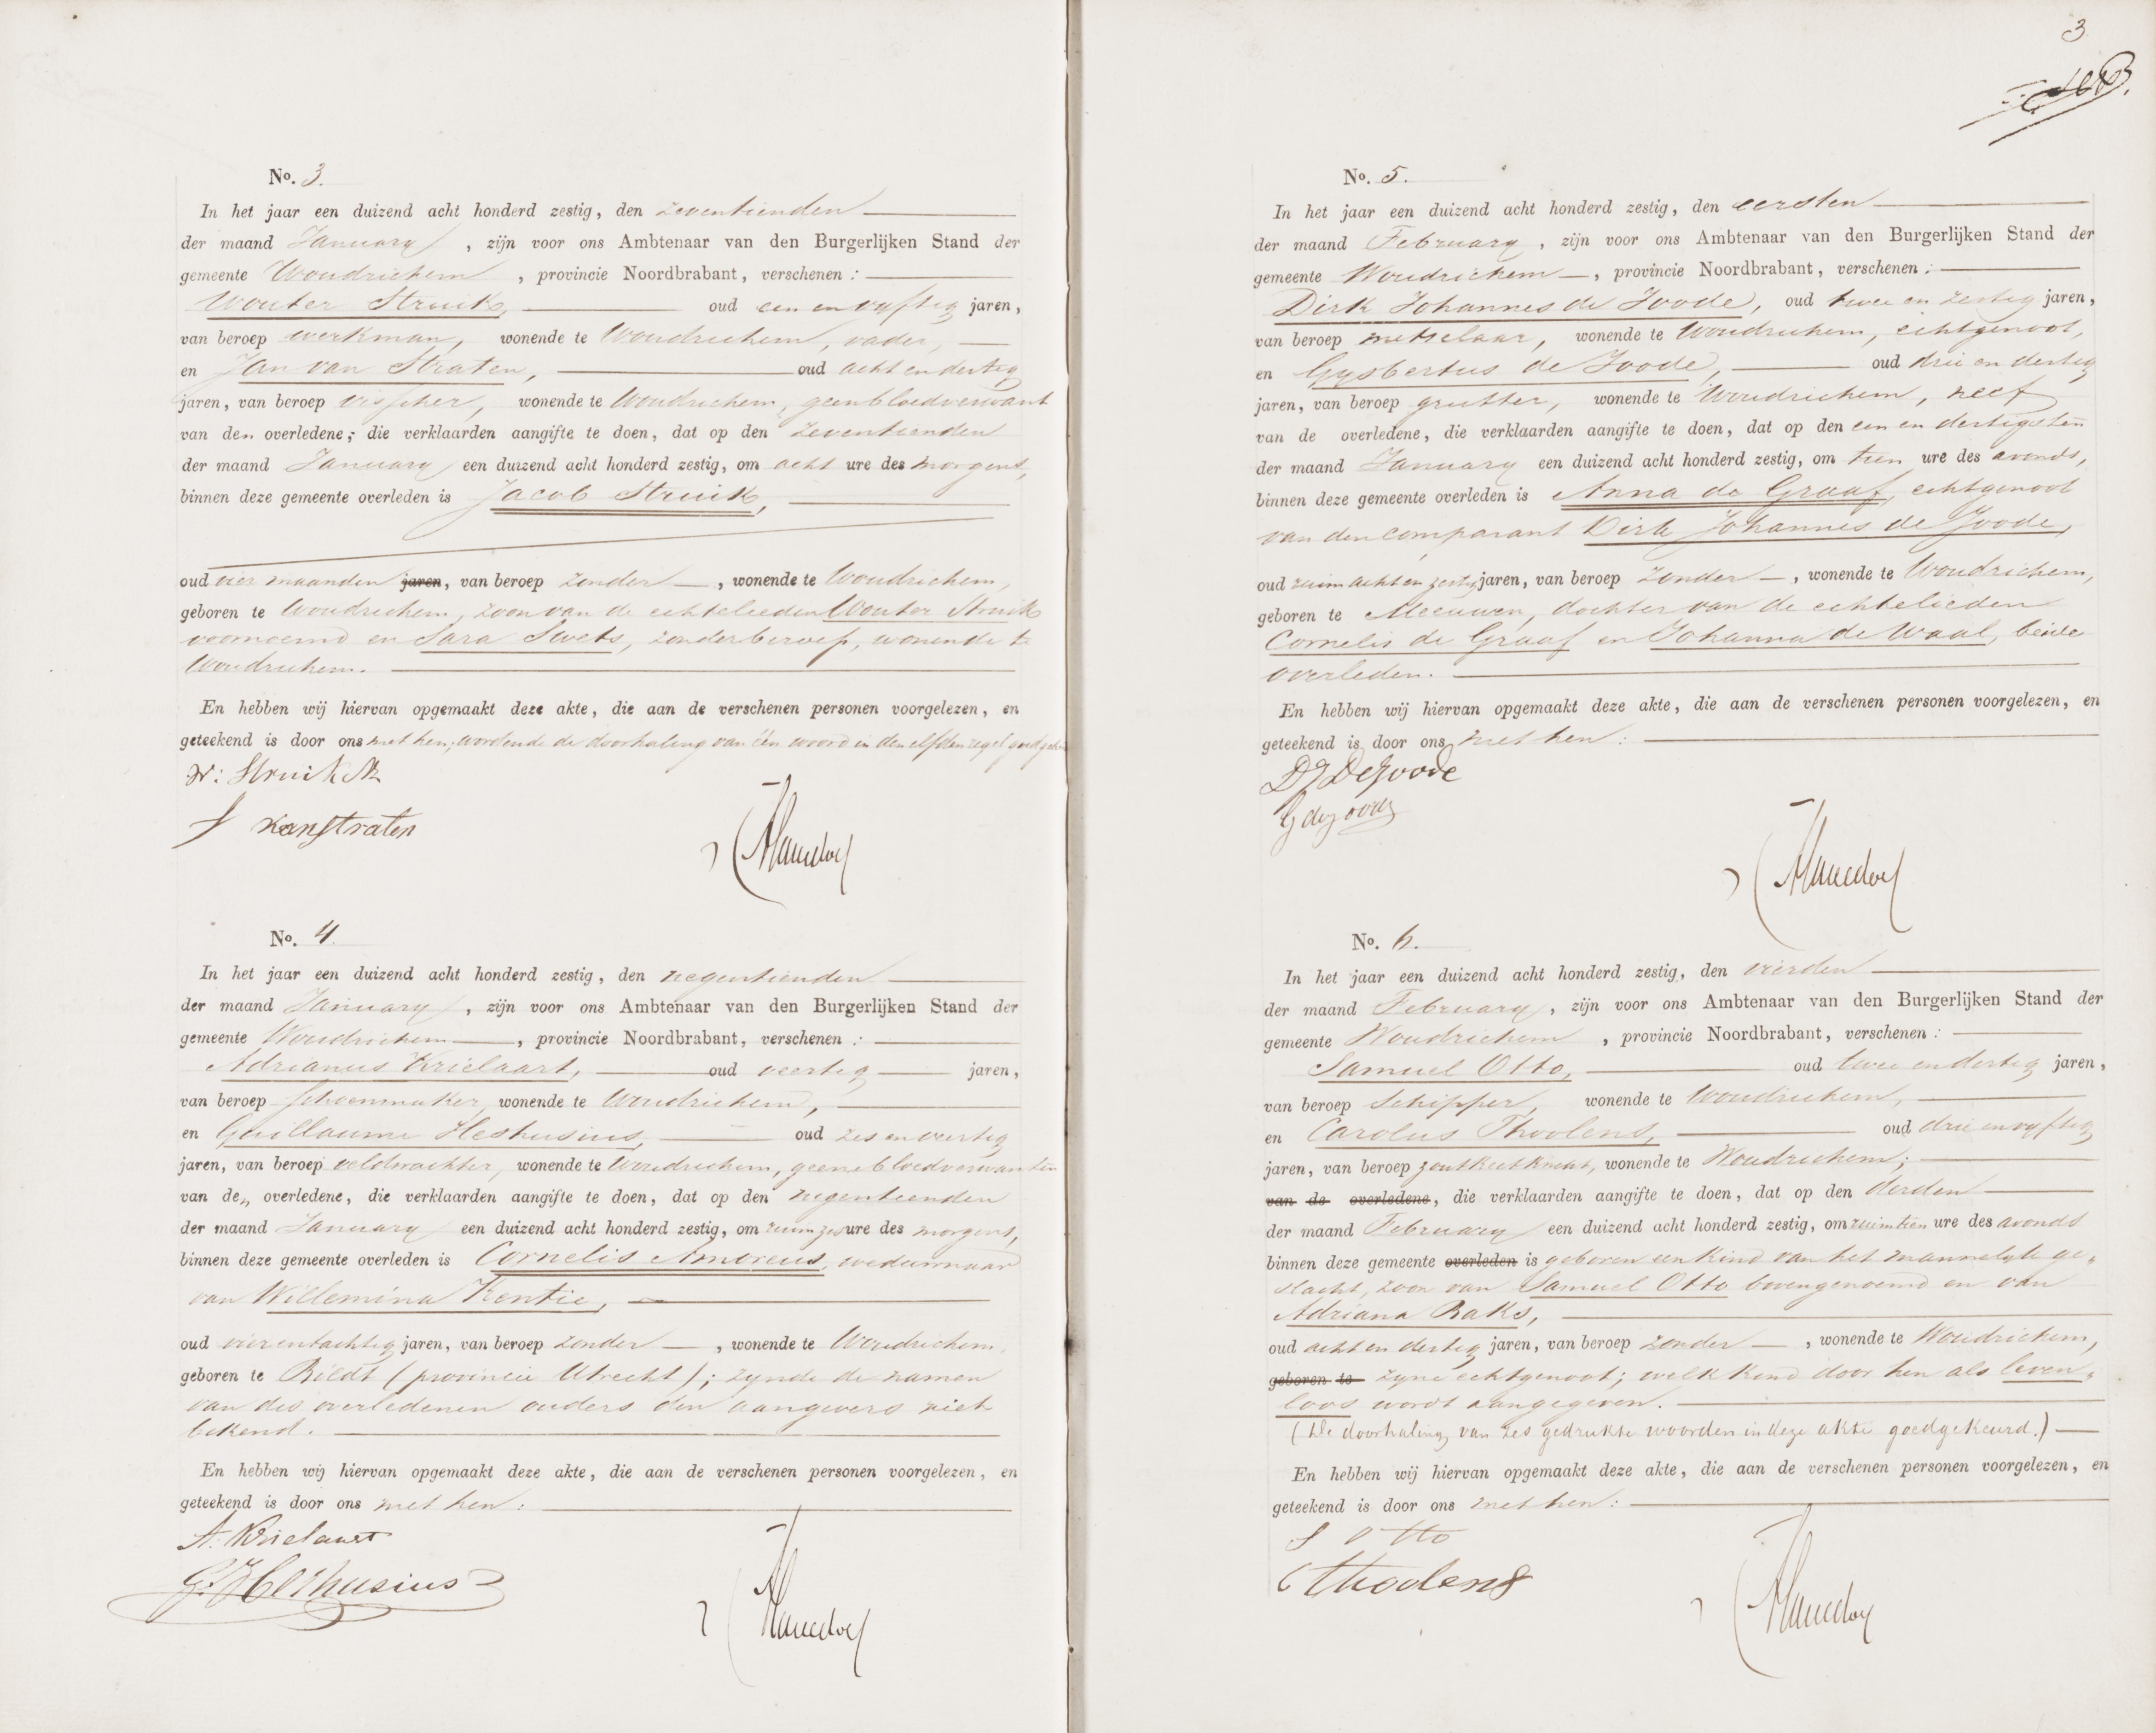 No. 3.
In het jaar een duizend acht honderd zestig, den zeventienden
der maand January, zijn voor ons Ambtenaar van den Burgerlijken Stand der
gemeente Woudrichem, provincie Noordbrabant, verschenen:
Wouter Struik, oud een en vyftig jaren,
van beroep werkman, wonende te Woudrichem, vader,
en Jan van Straten, oud acht en dertig
jaren, van beroep visscher, wonende te Woudrichem, geen bloedverwant
van den overledene; die verklaarden aangifte te doen, dat op den zeventienden
der maand January een duizend acht honderd zestig, om acht ure des morgens,
binnen deze gemeente overleden is Jacob Struik,
oud vier maanden jaren, van beroep zonder, wonende te Woudrichem,
geboren te Woudrichem, zoon van de echtelieden Wouter Struik
voornoemd en Sara Swets, zonder beroep, wonende te
Woudrichem.
En hebben wij hiervan opgemaakt deze akte, die aan de verschenen personen voorgelezen, en
geteekend is door ons met hen; wordende de doorhaling van één woord in den elfden regel
W: Struik
J vanstraten
No. 4.
In het jaar een duizend acht honderd zestig, den negentienden
der maand January, zijn voor ons Ambtenaar van den Burgerlijken Stand der
gemeente Woudrichem, provincie Noordbrabant, verschenen:
Adrianus Krielaart, oud veertig jaren,
van beroep schoenmaker, wonende te Woudrichem,
en Guillaume Heshusius, oud zes en veertig
jaren, van beroep veldwachter, wonende te Woudrichem, geene bloedverwanten
van den overledene, die verklaarden aangifte te doen, dat op den negentienden
der maand January een duizend acht honderd zestig, om ruim zes ure des morgens,
binnen deze gemeente overleden is Cornelis Amoreus, weduwnaar
van Willemina Kentie,
oud vier en tachtig jaren, van beroep zonder, wonende te Woudrichem,
geboren te Bildt (provincie Utrecht); zynde de namen
van des overledenen ouders den aangevers niet
bekend.
En hebben wij hiervan opgemaakt deze akte, die aan de verschenen personen voorgelezen, en
geteekend is door ons met hen:
A. Krielaart
G. Heshusius
3
No. 5.
In het jaar een duizend acht honderd zestig, den eersten
der maand February, zijn voor ons Ambtenaar van den Burgerlijken Stand der
gemeente Woudrichem, provincie Noordbrabant, verschenen:
Dirk Johannes de Joode, oud twee en zestig jaren,
van beroep metselaar, wonende te Woudrichem, echtgenoot,
en Gysbertus de Joode, oud drie en dertig
jaren, van beroep grutter, wonende te Woudrichem, neef
van de overledene, die verklaarden aangifte te doen, dat op den een en dertigsten
der maand January een duizend acht honderd zestig, om tien ure des avonds,
binnen deze gemeente overleden is Anna de Graaf, echtgenoot
van den comparant Dirk Johannes de Joode,
oud ruim acht en zestig jaren, van beroep zonder, wonende te Woudrichem,
geboren te Meeuwen, dochter van de echtelieden
Cornelis de Graaf en Johanna de Waal, beide
overleden.
En hebben wij hiervan opgemaakt deze akte, die aan de verschenen personen voorgelezen, en
geteekend is door ons met hen:
DJ DeJoode
G dejoode
No. 6.
In het jaar een duizend acht honderd zestig, den vierden
der maand February, zijn voor ons Ambtenaar van den Burgerlijken Stand der
gemeente Woudrichem, provincie Noordbrabant, verschenen:
Samuel Otto, oud twee en dertig jaren,
van beroep schipper, wonende te Woudrichem,
en Carolus Thoolens, oud drie en vyftig
jaren, van beroep zoutkeetknecht, wonende te Woudrichem;
van de overledene, die verklaarden aangifte te doen, dat op den derden
der maand February een duizend acht honderd zestig, om ruim tien ure des avonds
binnen deze gemeente overleden is geboren een kind van het mannelyk ge-
slacht, zoon van Samuel Otto bovengenoemd en van
Adriana Raks,
oud acht en dertig jaren, van beroep zonder, wonende te Woudrichem,
geboren te zyne echtgenoot; welk kind door hen als leven-
loos wordt aangegeven.
(De doorhaling van zes gedrukte woorden in deze akte goedgekeurd.)
En hebben wij hiervan opgemaakt deze akte, die aan de verschenen personen voorgelezen, en
geteekend is door ons met hen:
S Otto
C Thoolens